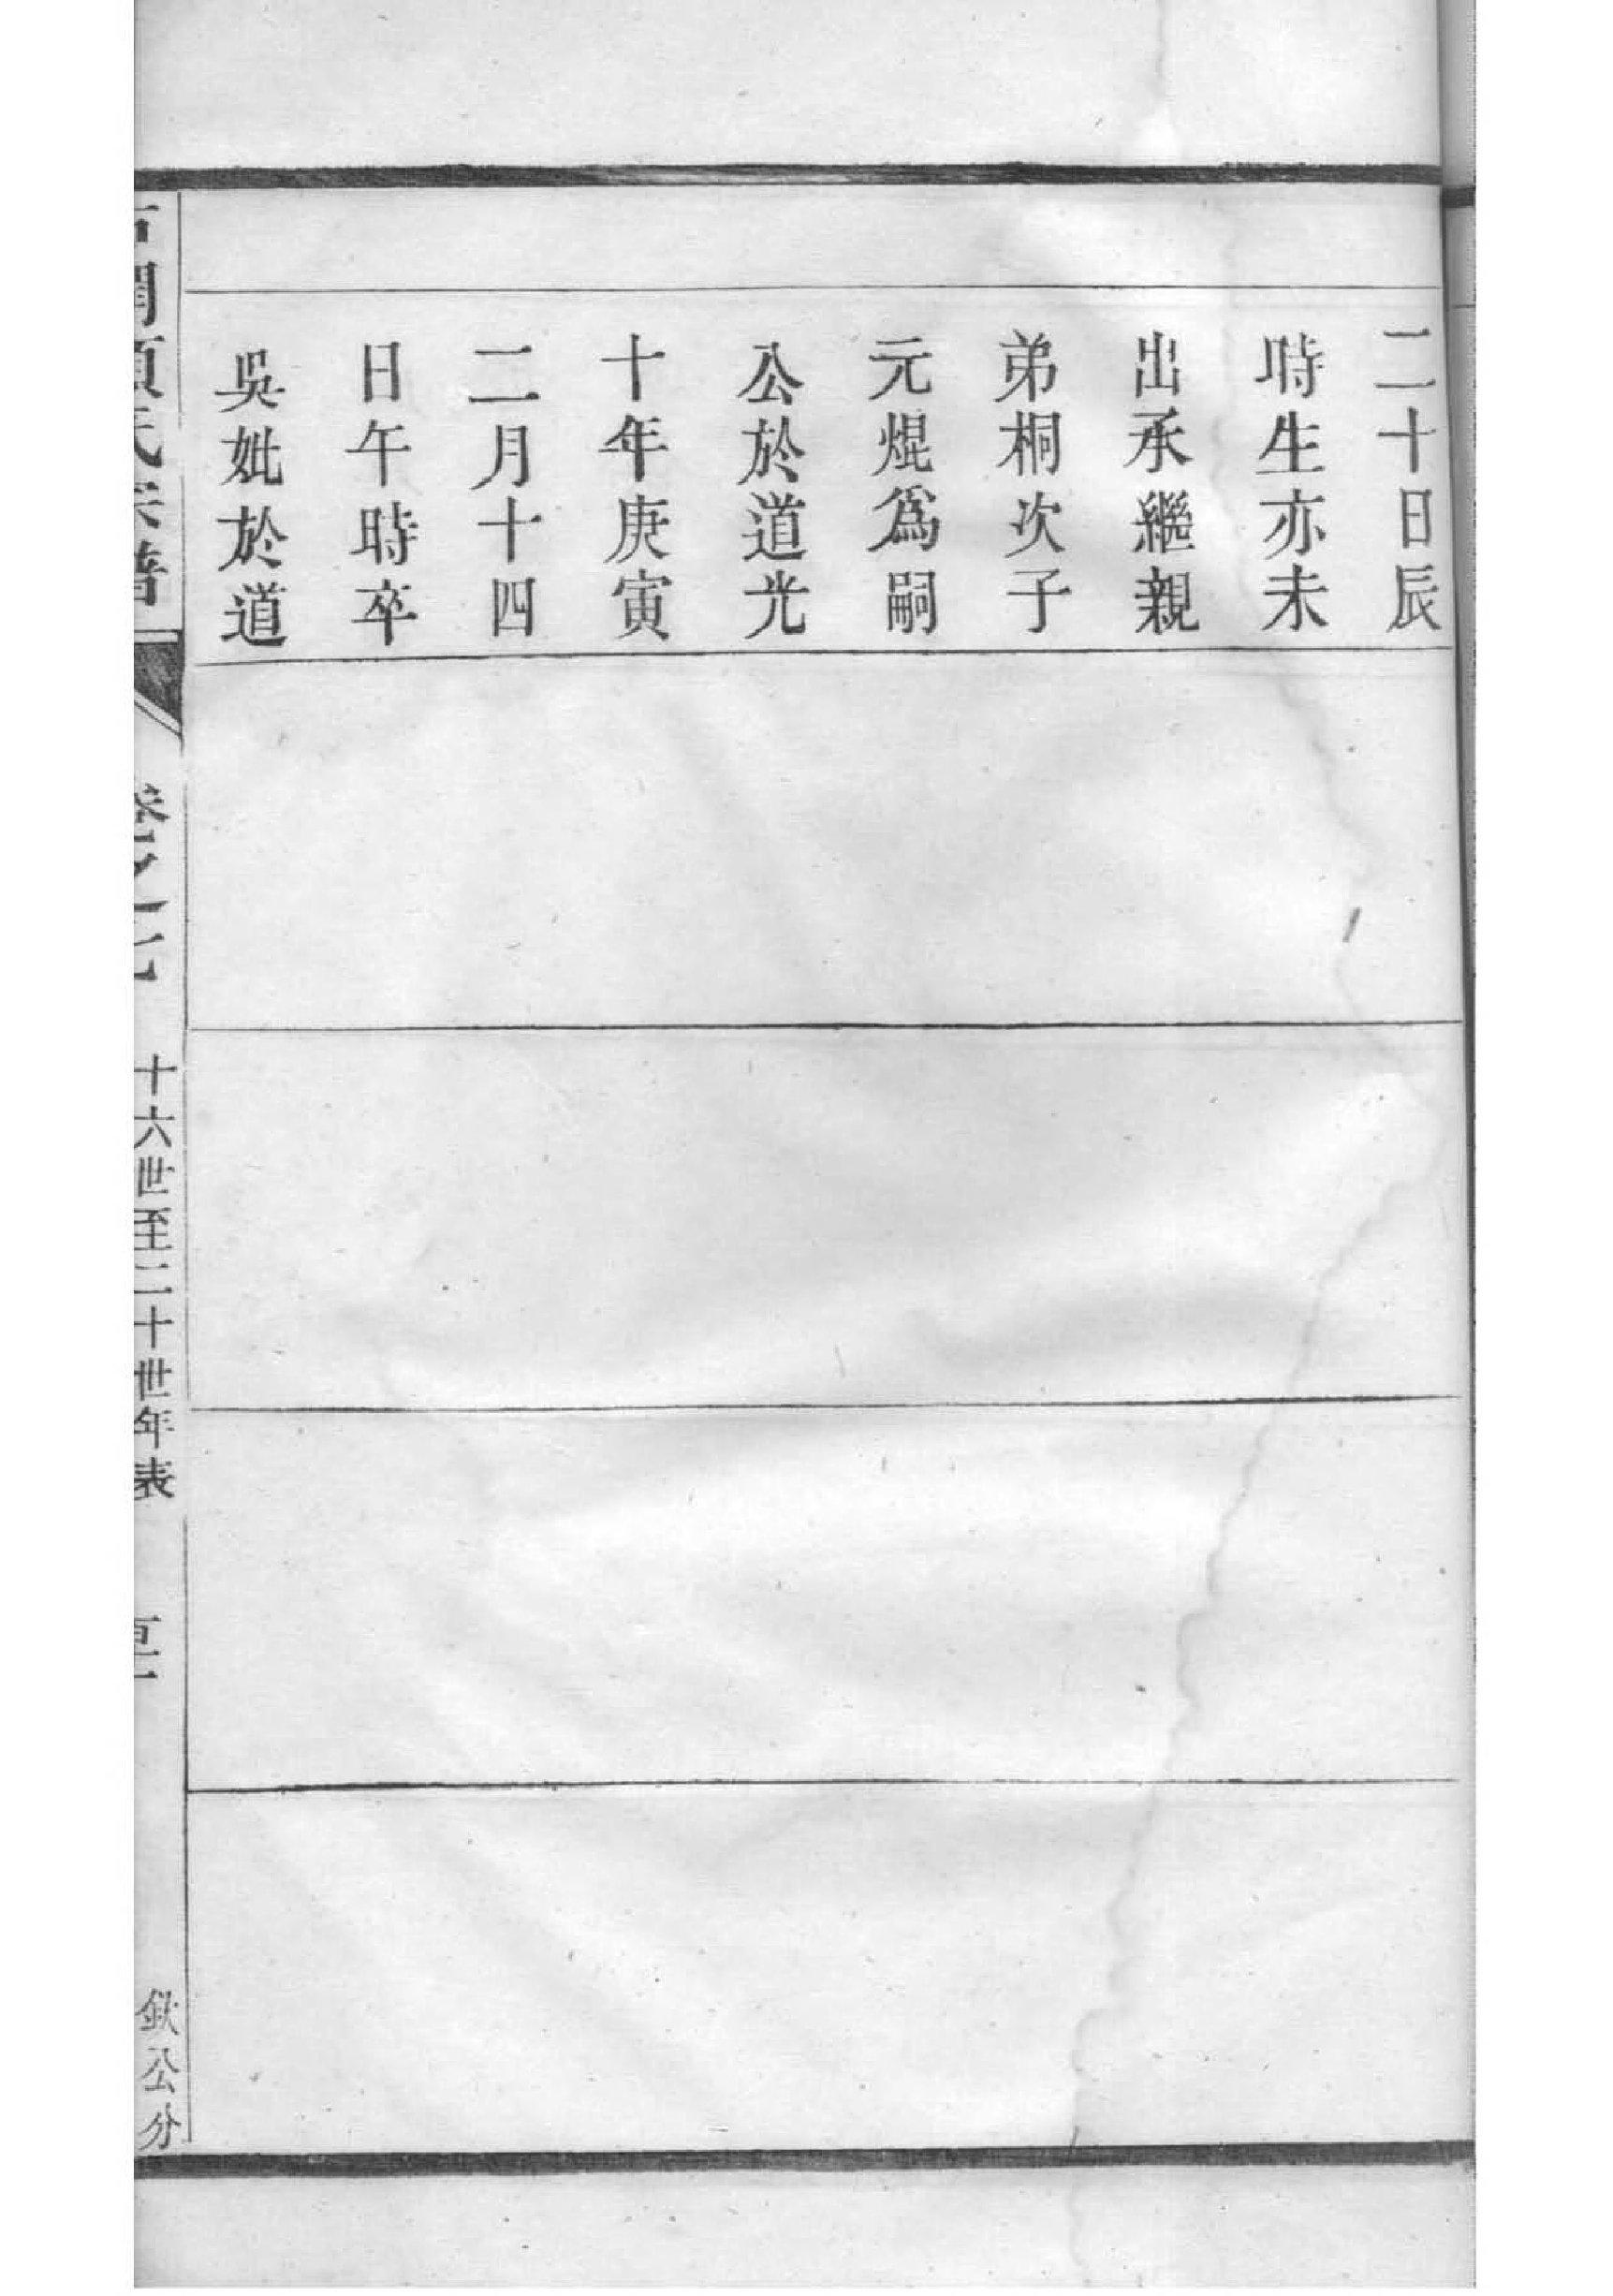 二十日辰
時生亦未
出承繼親
弟桐次子
元焜爲嗣
公於道光
十年庚寅
二月十四
日午時卒
吳妣於道
氏宗譜
卷之七
十六世至二十世年表
欽公分